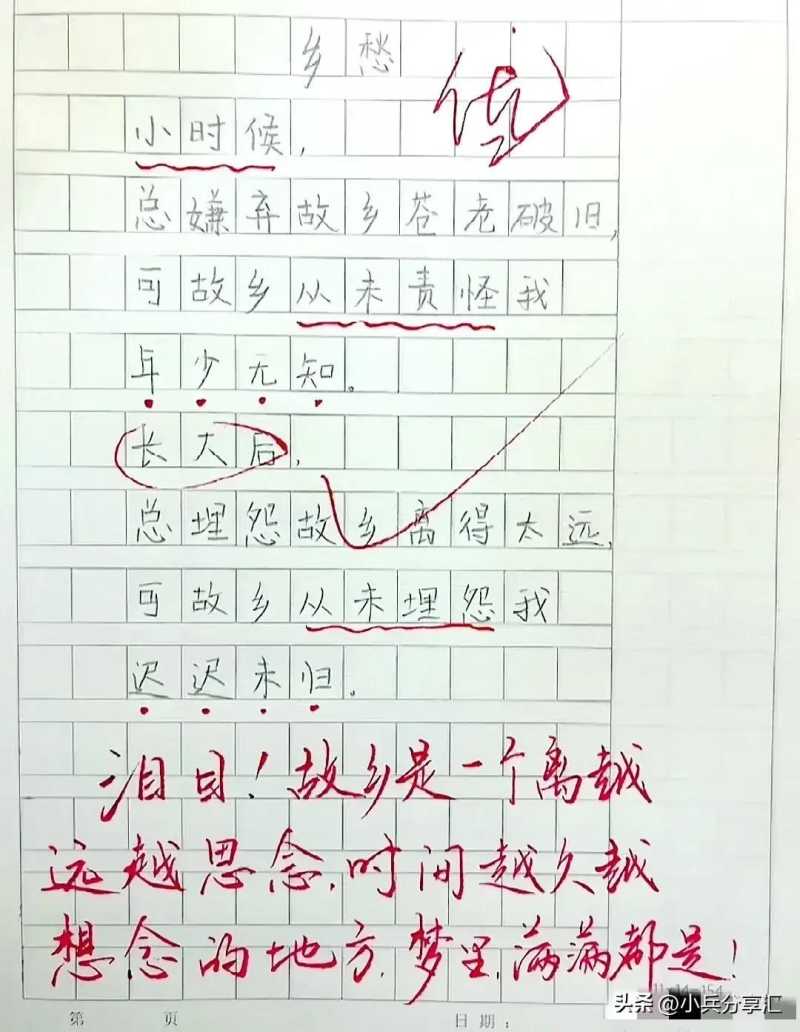 乡愁
优
小时候,
总嫌弃故乡苍老破旧,
可故乡从未责怪我
年少无知。
长大后,
总埋怨故乡离得太远,
可故乡从未埋怨我
迟迟未归。
泪目！故乡是一个离越
远越思念,时间越久越
想念的地方,梦里,满满都是！
第 页
日期：
头条 @小兵分享汇